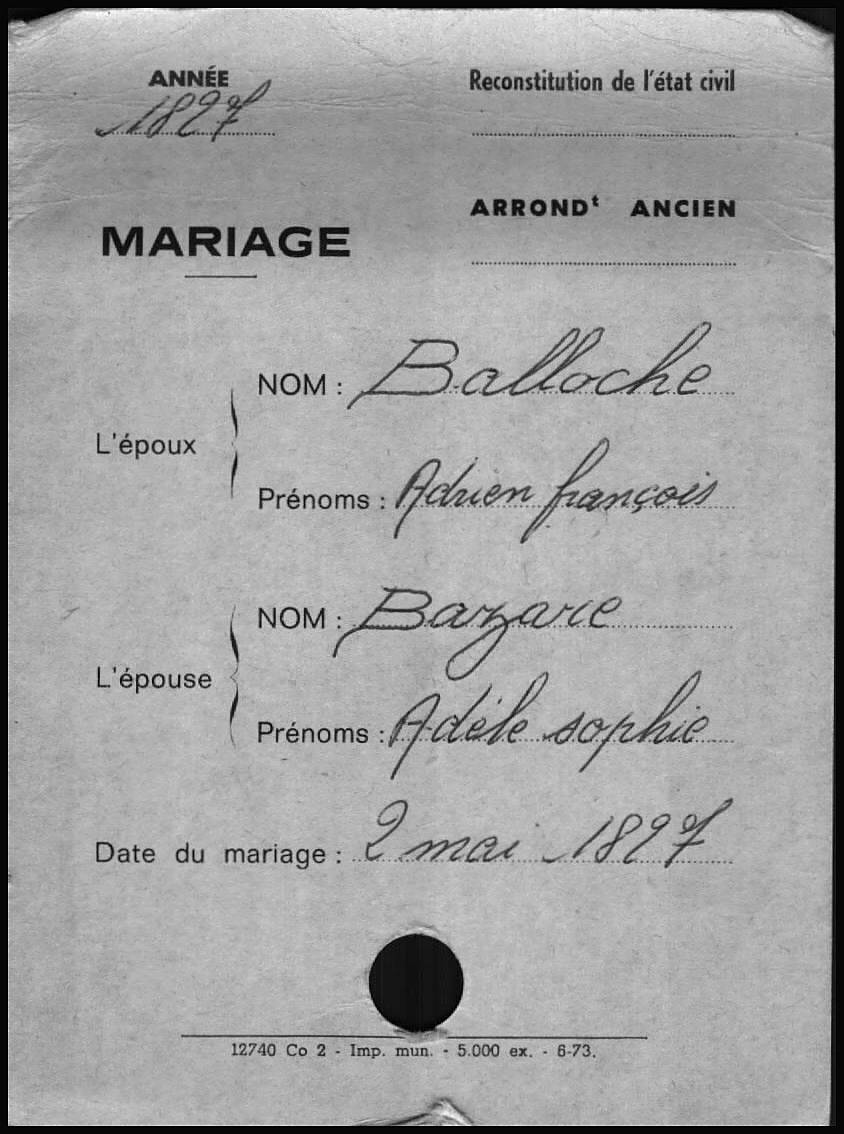 ANNÉE
1827
Reconstitution de l'état civil
ARRONDᵗ ANCIEN
MARIAGE
L'époux
NOM : Balloche
Prénoms : Adrien françois
L'épouse
NOM : Bazare
Prénoms : Adèle sophie
Date du mariage : 2 mai 1827
12740 Co 2 - Imp. mun. - 5.000 ex. - 6-73.